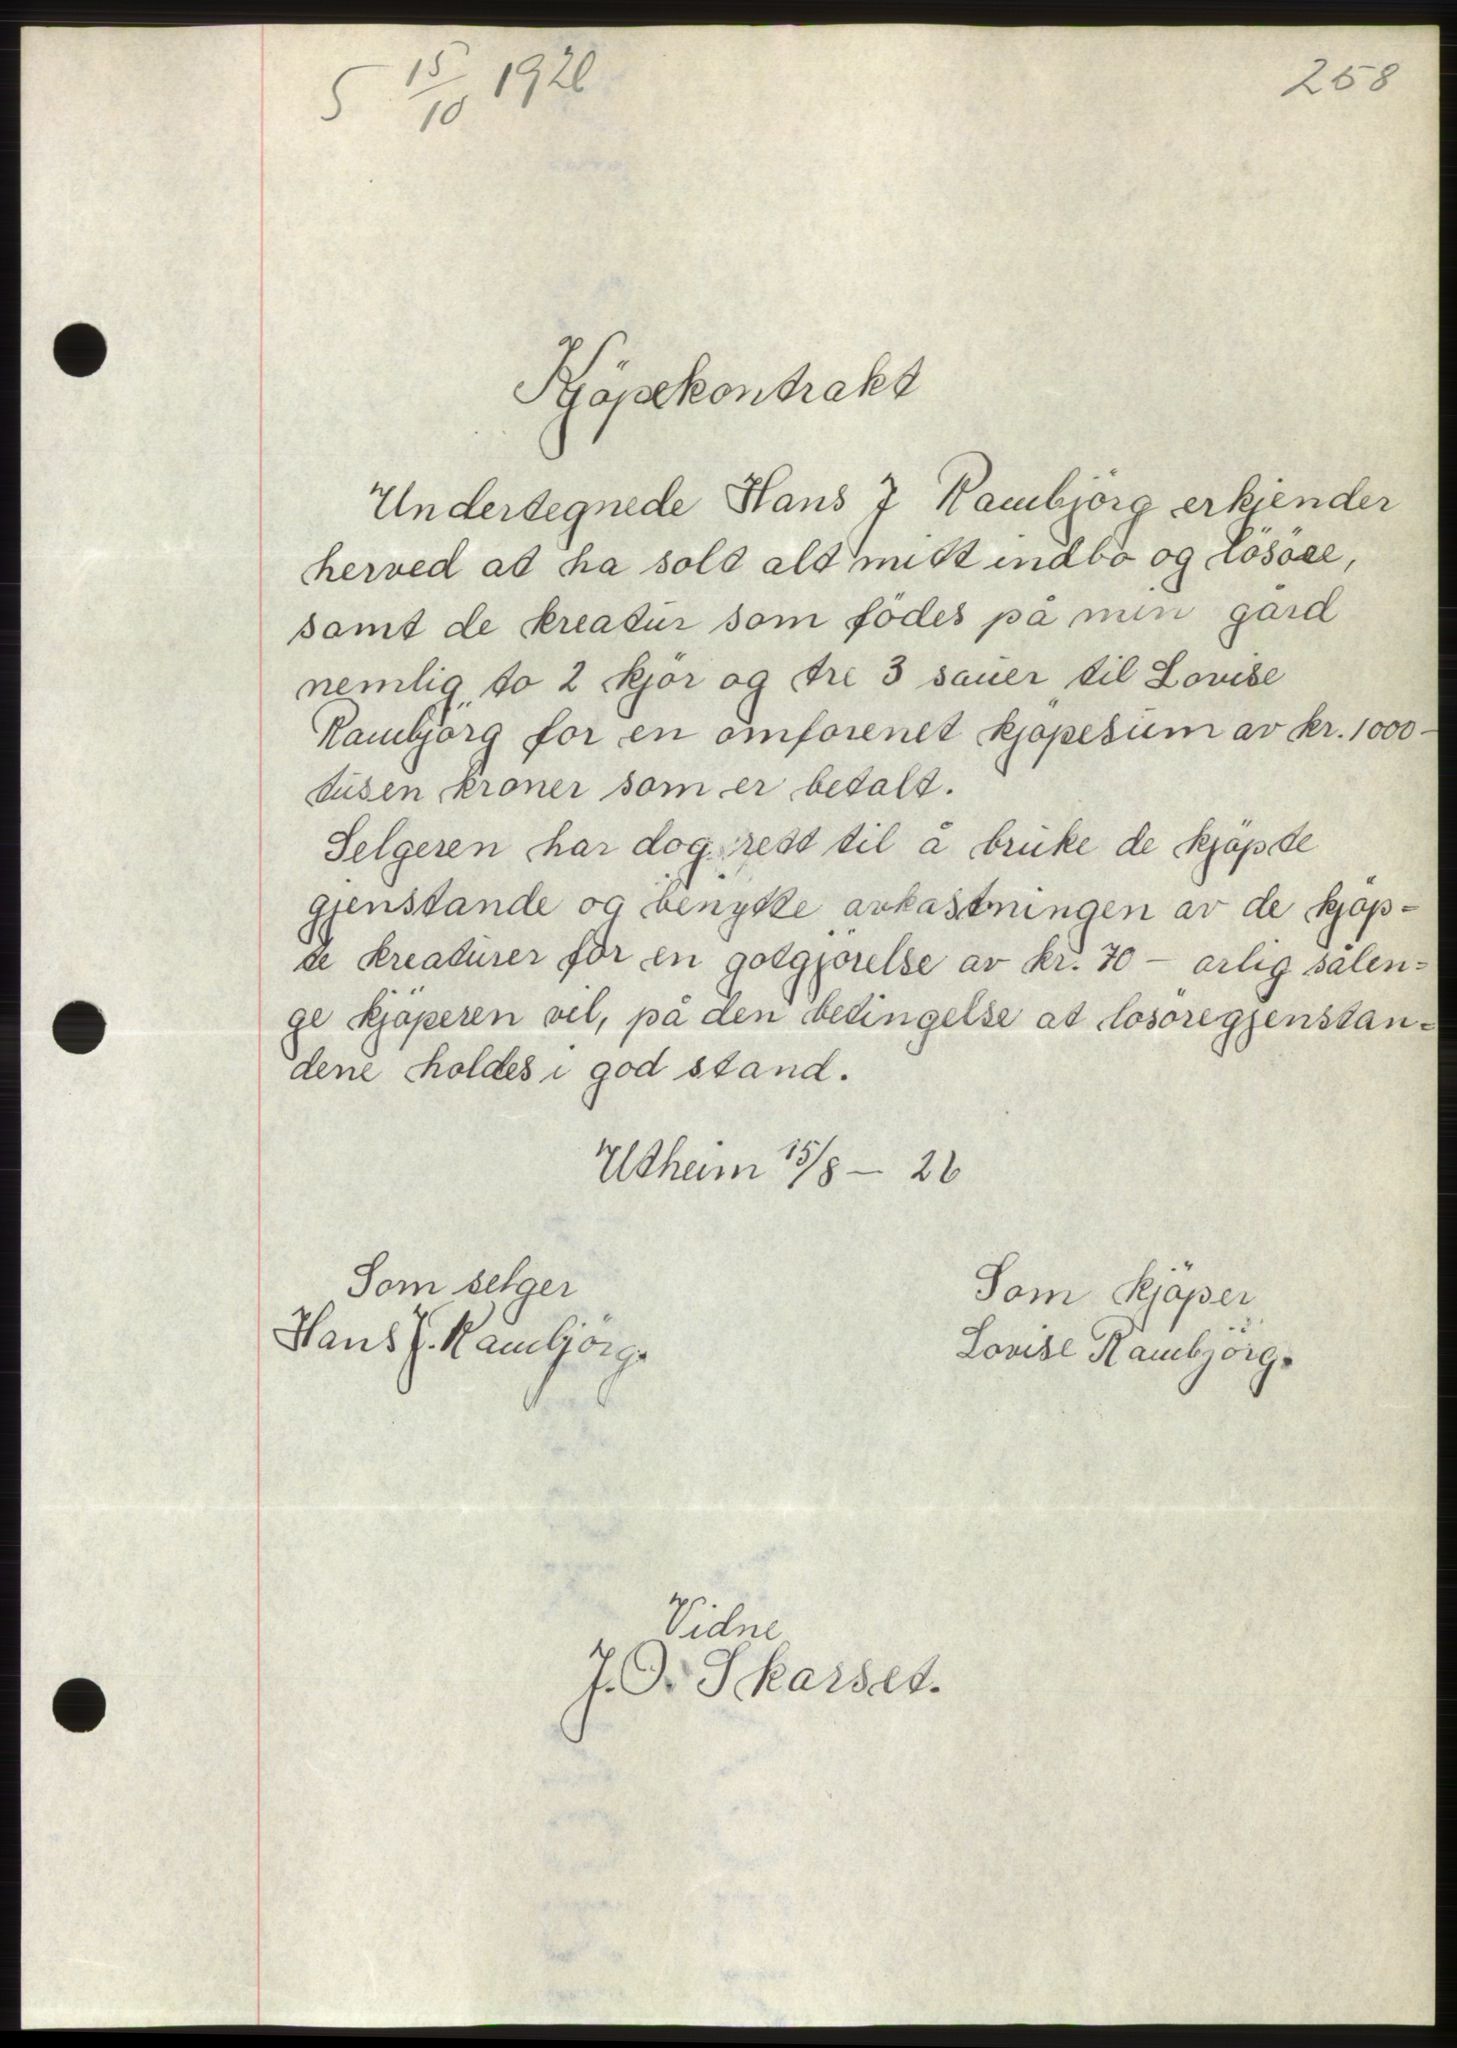 5 15/10 1926
258
Kjöpekontrakt
Undertegnede Hans J Rambjörg erkjender
herved at ha solt alt mitt indbo og lösöre,
samt de kreatur som födes på min gård
nemlig to 2 kjör og tre 3 sauer til Lovise
Rambjörg for en omforenet kjöpesum av kr. 1000-
tusen kroner som er betalt.
Selgeren har dog rett til å bruke de kjöpte
gjenstande og benytte avkastningen av de kjöp=
te kreaturer for en gotgjörelse av kr. 70 - årlig sålen=
ge kjöperen vil, på den betingelse at lösöregjenstan=
dene holdes i god stand.
Utheim 15/8 - 26
Som selger
Hans J. Rambjörg.
Som kjöper
Lovise Rambjörg.
Vidne
J. O. Skarset.